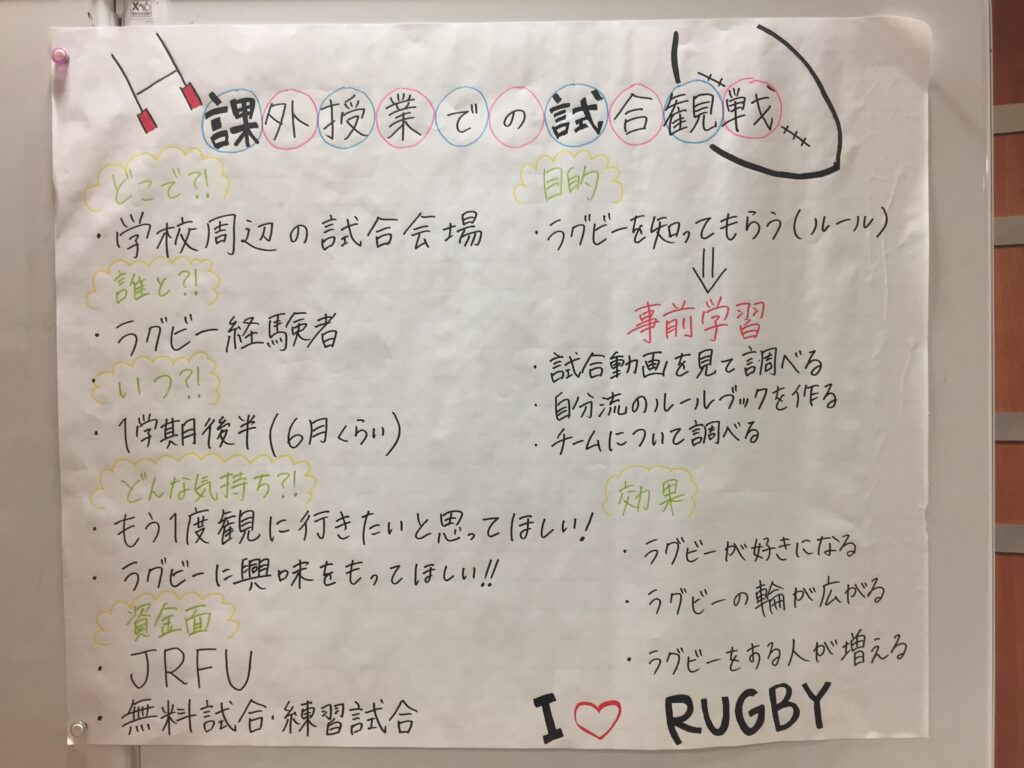 課外授業での試合観戦
どこで?!
・学校周辺の試合会場
誰と?!
・ラグビー経験者
・いつ?!
・1学期後半(6月くらい)
どんな気持ち?!
・もう1度観に行きたいと思ってほしい!
・ラグビーに興味をもってほしい!!
資金面
・JRFU
・無料試合・練習試合
目的
・ラグビーを知ってもらう(ルール)
⇓
事前学習
・試合動画を見て調べる
・自分流のルールブックを作る
・チームについて調べる
効果
・ラグビーが好きになる
・ラグビーの輪が広がる
・ラグビーをする人が増える
I ♡ RUGBY